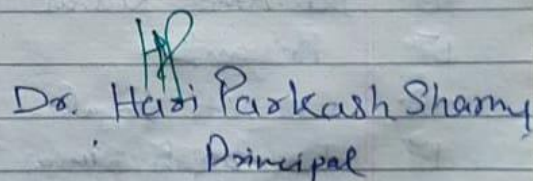 Dr. Hari Parkash Sharma
Principal